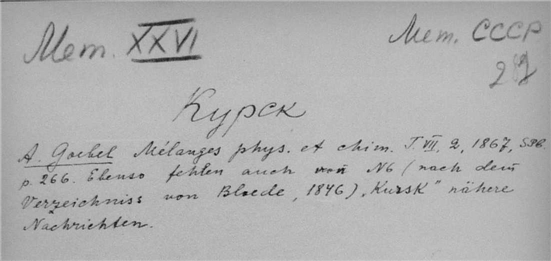 Мет. XXVI
Мет. СССР
Курск
A. Goebel Mélanges phys. et chim. T. VII, 2, 1867, SPB.
p. 266. Ebenso fehlen auch von N6 (nach dem
Verzeichniss von Bloede, 1846) „Kursk" nähere
Nachrichten.